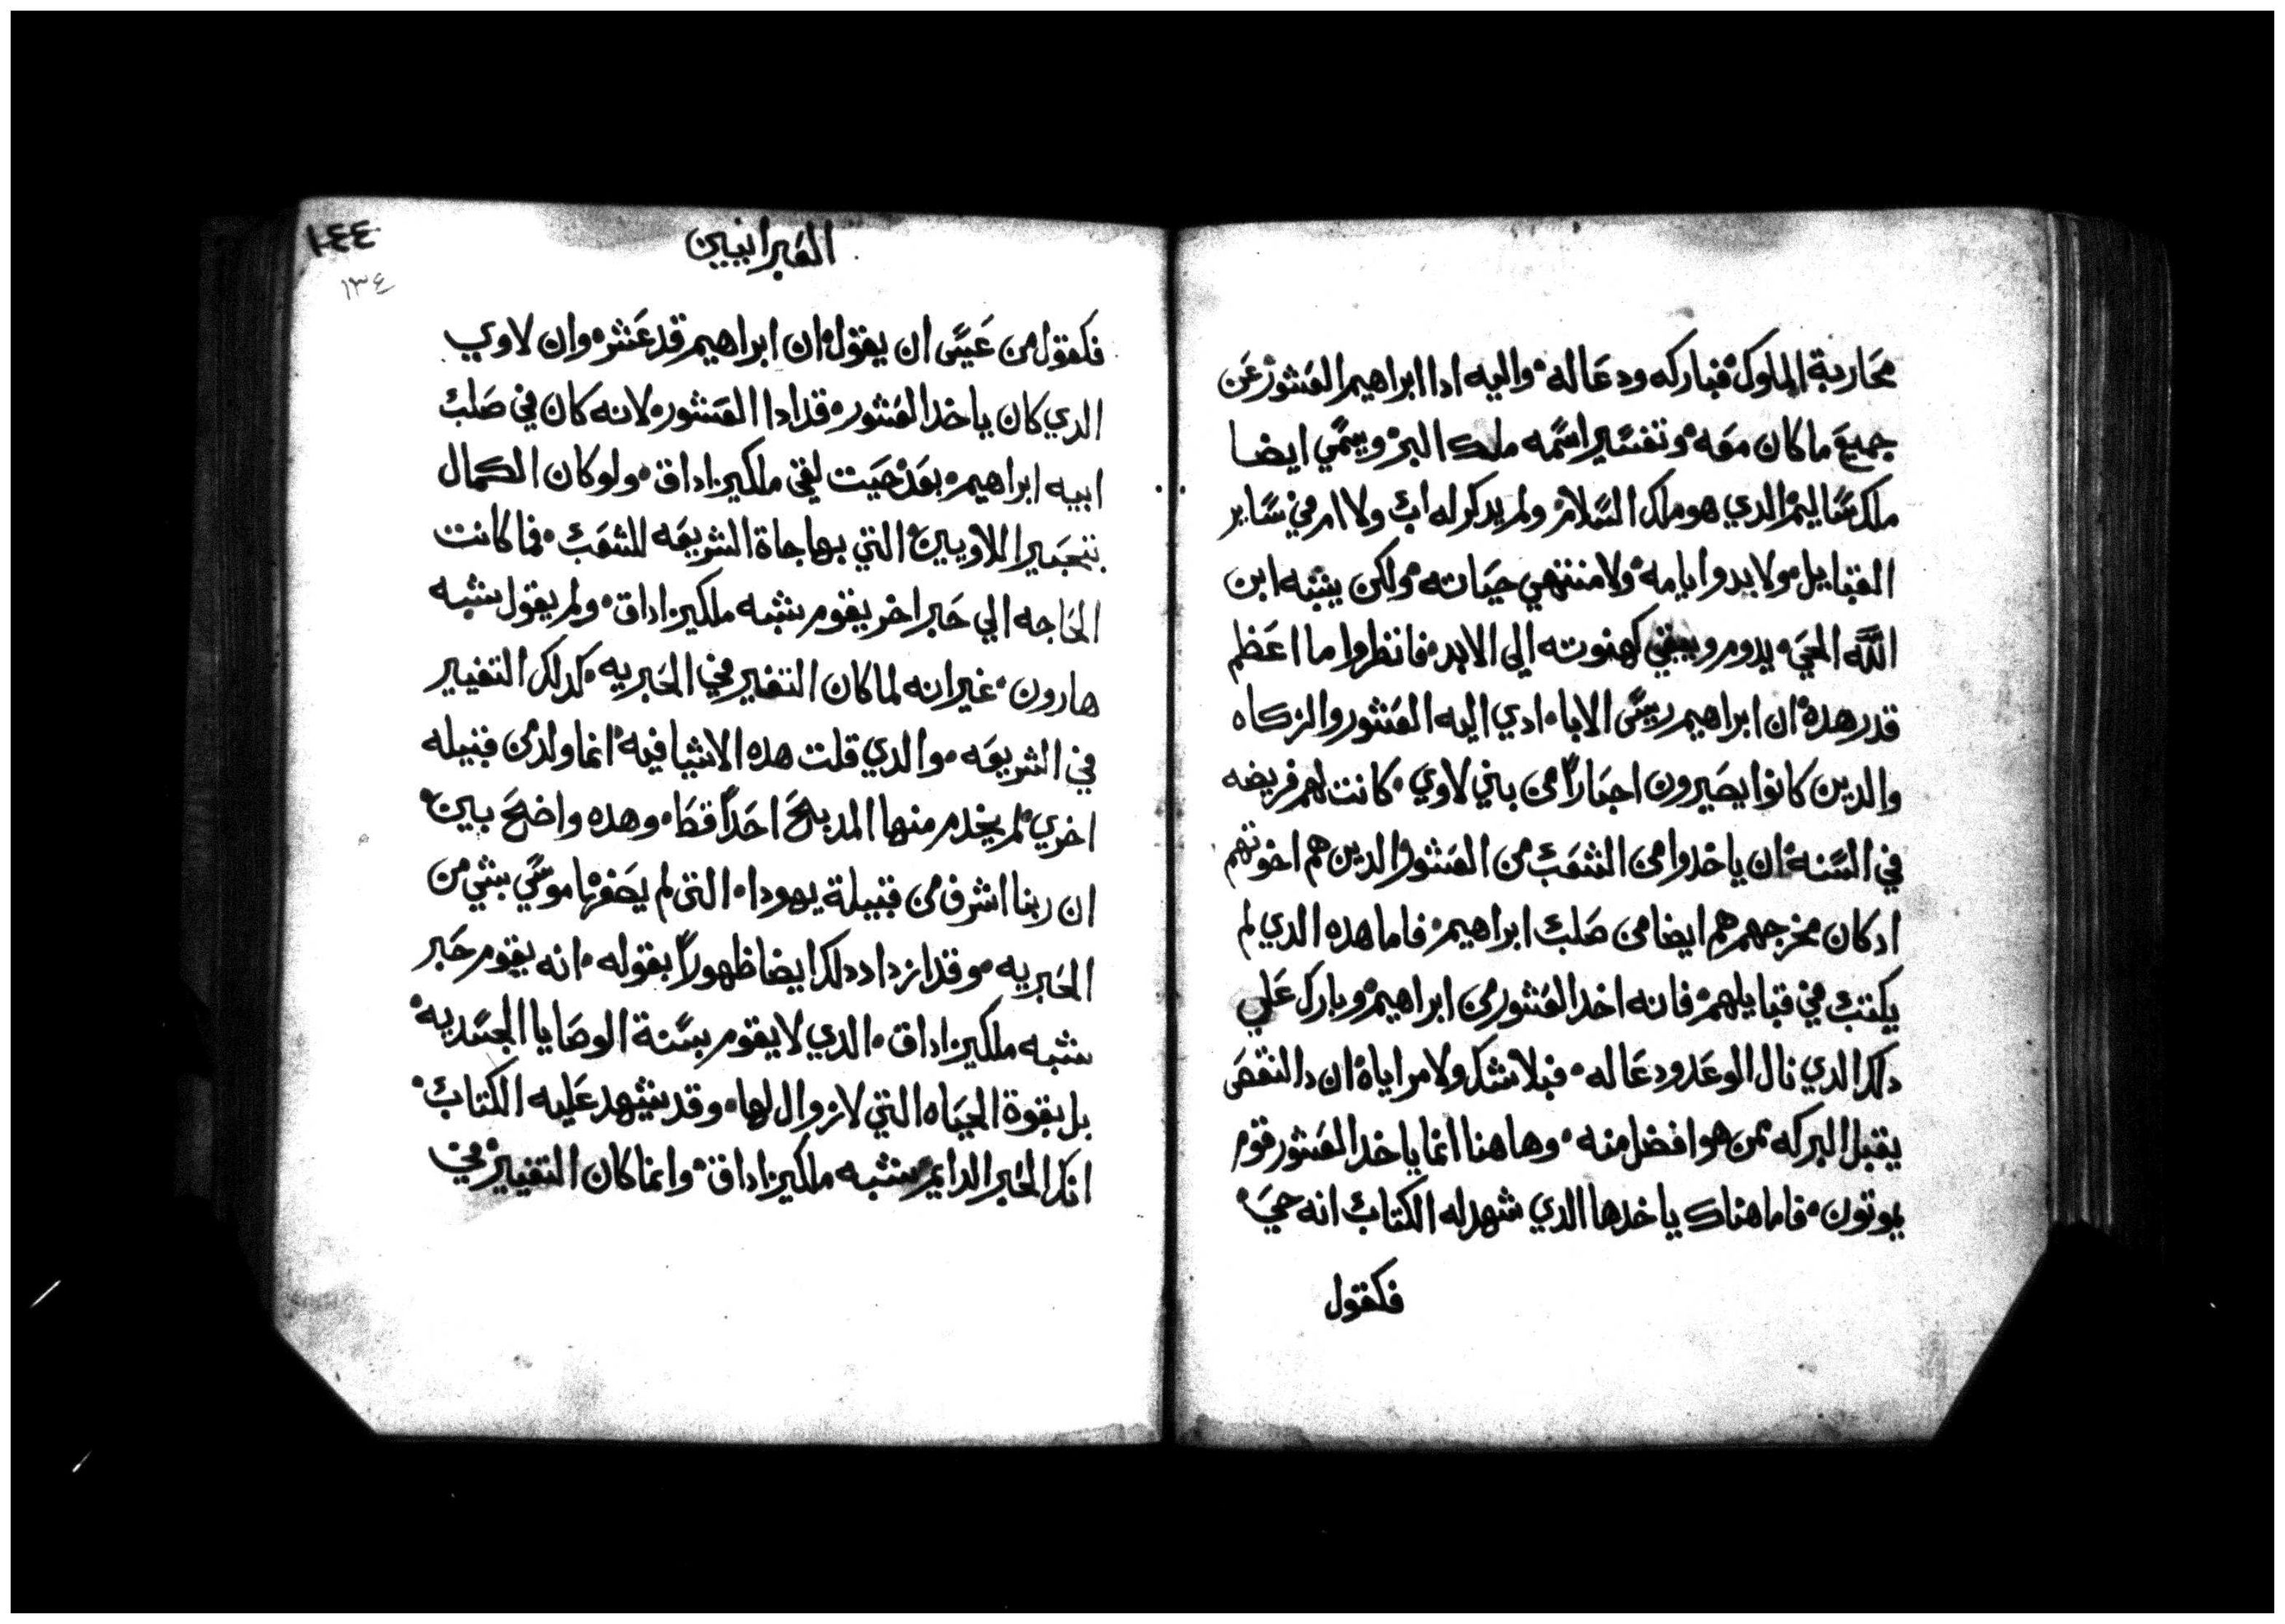 محاربة الملوك فباركه ودعا له واليه ادا ابراهيم العشور عن
جميع ما كان معه وتفسير اسمه ملك البر ويسمي ايضا
ملك ساليم الدي هو ملك السلام ولم يدكر له اب ولا ام في ساير
القبايل ولا بدو ايامه ولا منتهي حياته ولكن يشبه ابن
الله الحي يدوم ويبقي كهنوته الي الابد فانظروا ما اعظم
قدر هده ان ابراهيم ريس الابا ادي اليه العشور والزكاه
والدين كانوا يصيرون احباراً من بني لاوي كانت لهم فريضه
في السنه ان ياخدوا من الشعب من العشور الدين هم اخوتهم
ادكان مخرجهم هم ايضا من صلب ابراهيم فاما هده الدي لم
يكتب في قبايلهم فانه اخد العشور من ابراهيم وبارك علي
دلك الدي نال الوعد ودعا له فبلا شك ولا مراياه ان دا النقص
يقبل البركه ممن هو افضل منه وهاهنا انما ياخد العشور قوم
يموتون فاما هناك ياخدها الدي شهد له الكتاب انه حي
فكقول
العبرانيين
١٤٤
١٣٤
فكقول من عسى ان يقول ان ابراهيم قد عشر وان لاوي
الدي كان ياخد العشور قد ادا العشور لانه كان في صلب
ابيه ابراهيم بعد حيت لقي ملكيزاداق ولو كان الكمال
بتحبير اللاويين التي بها جاة الشريعه للشعب فما كانت
الحاجه الي حبر اخر يقوم بشبه ملكيزاداق ولم يقول بشبه
هارون غير انه لما كان التغير في الحبريه كدلك التغيير
في الشريعه والدي قلت هده الاشيا فيه انما ولد من قبيله
اخري لم يخدم منها المدبح احداً قط وهده واضح بين
ان ربنا اشرف من قبيلة يهودا التى لم يصفها موسي بشي من
الحبريه وقد ازداد دلك ايضا ظهوراً بقوله انه يقوم حبر
بشبه ملكيزاداق الدي لا يقوم بسنة الوصايا الجسديه
بل بقوة الحياه التي لا زوال لها وقد يشهد عليه الكتاب
انك الحبر الدايم بشبه ملكيزاداق وانما كان التغيير في